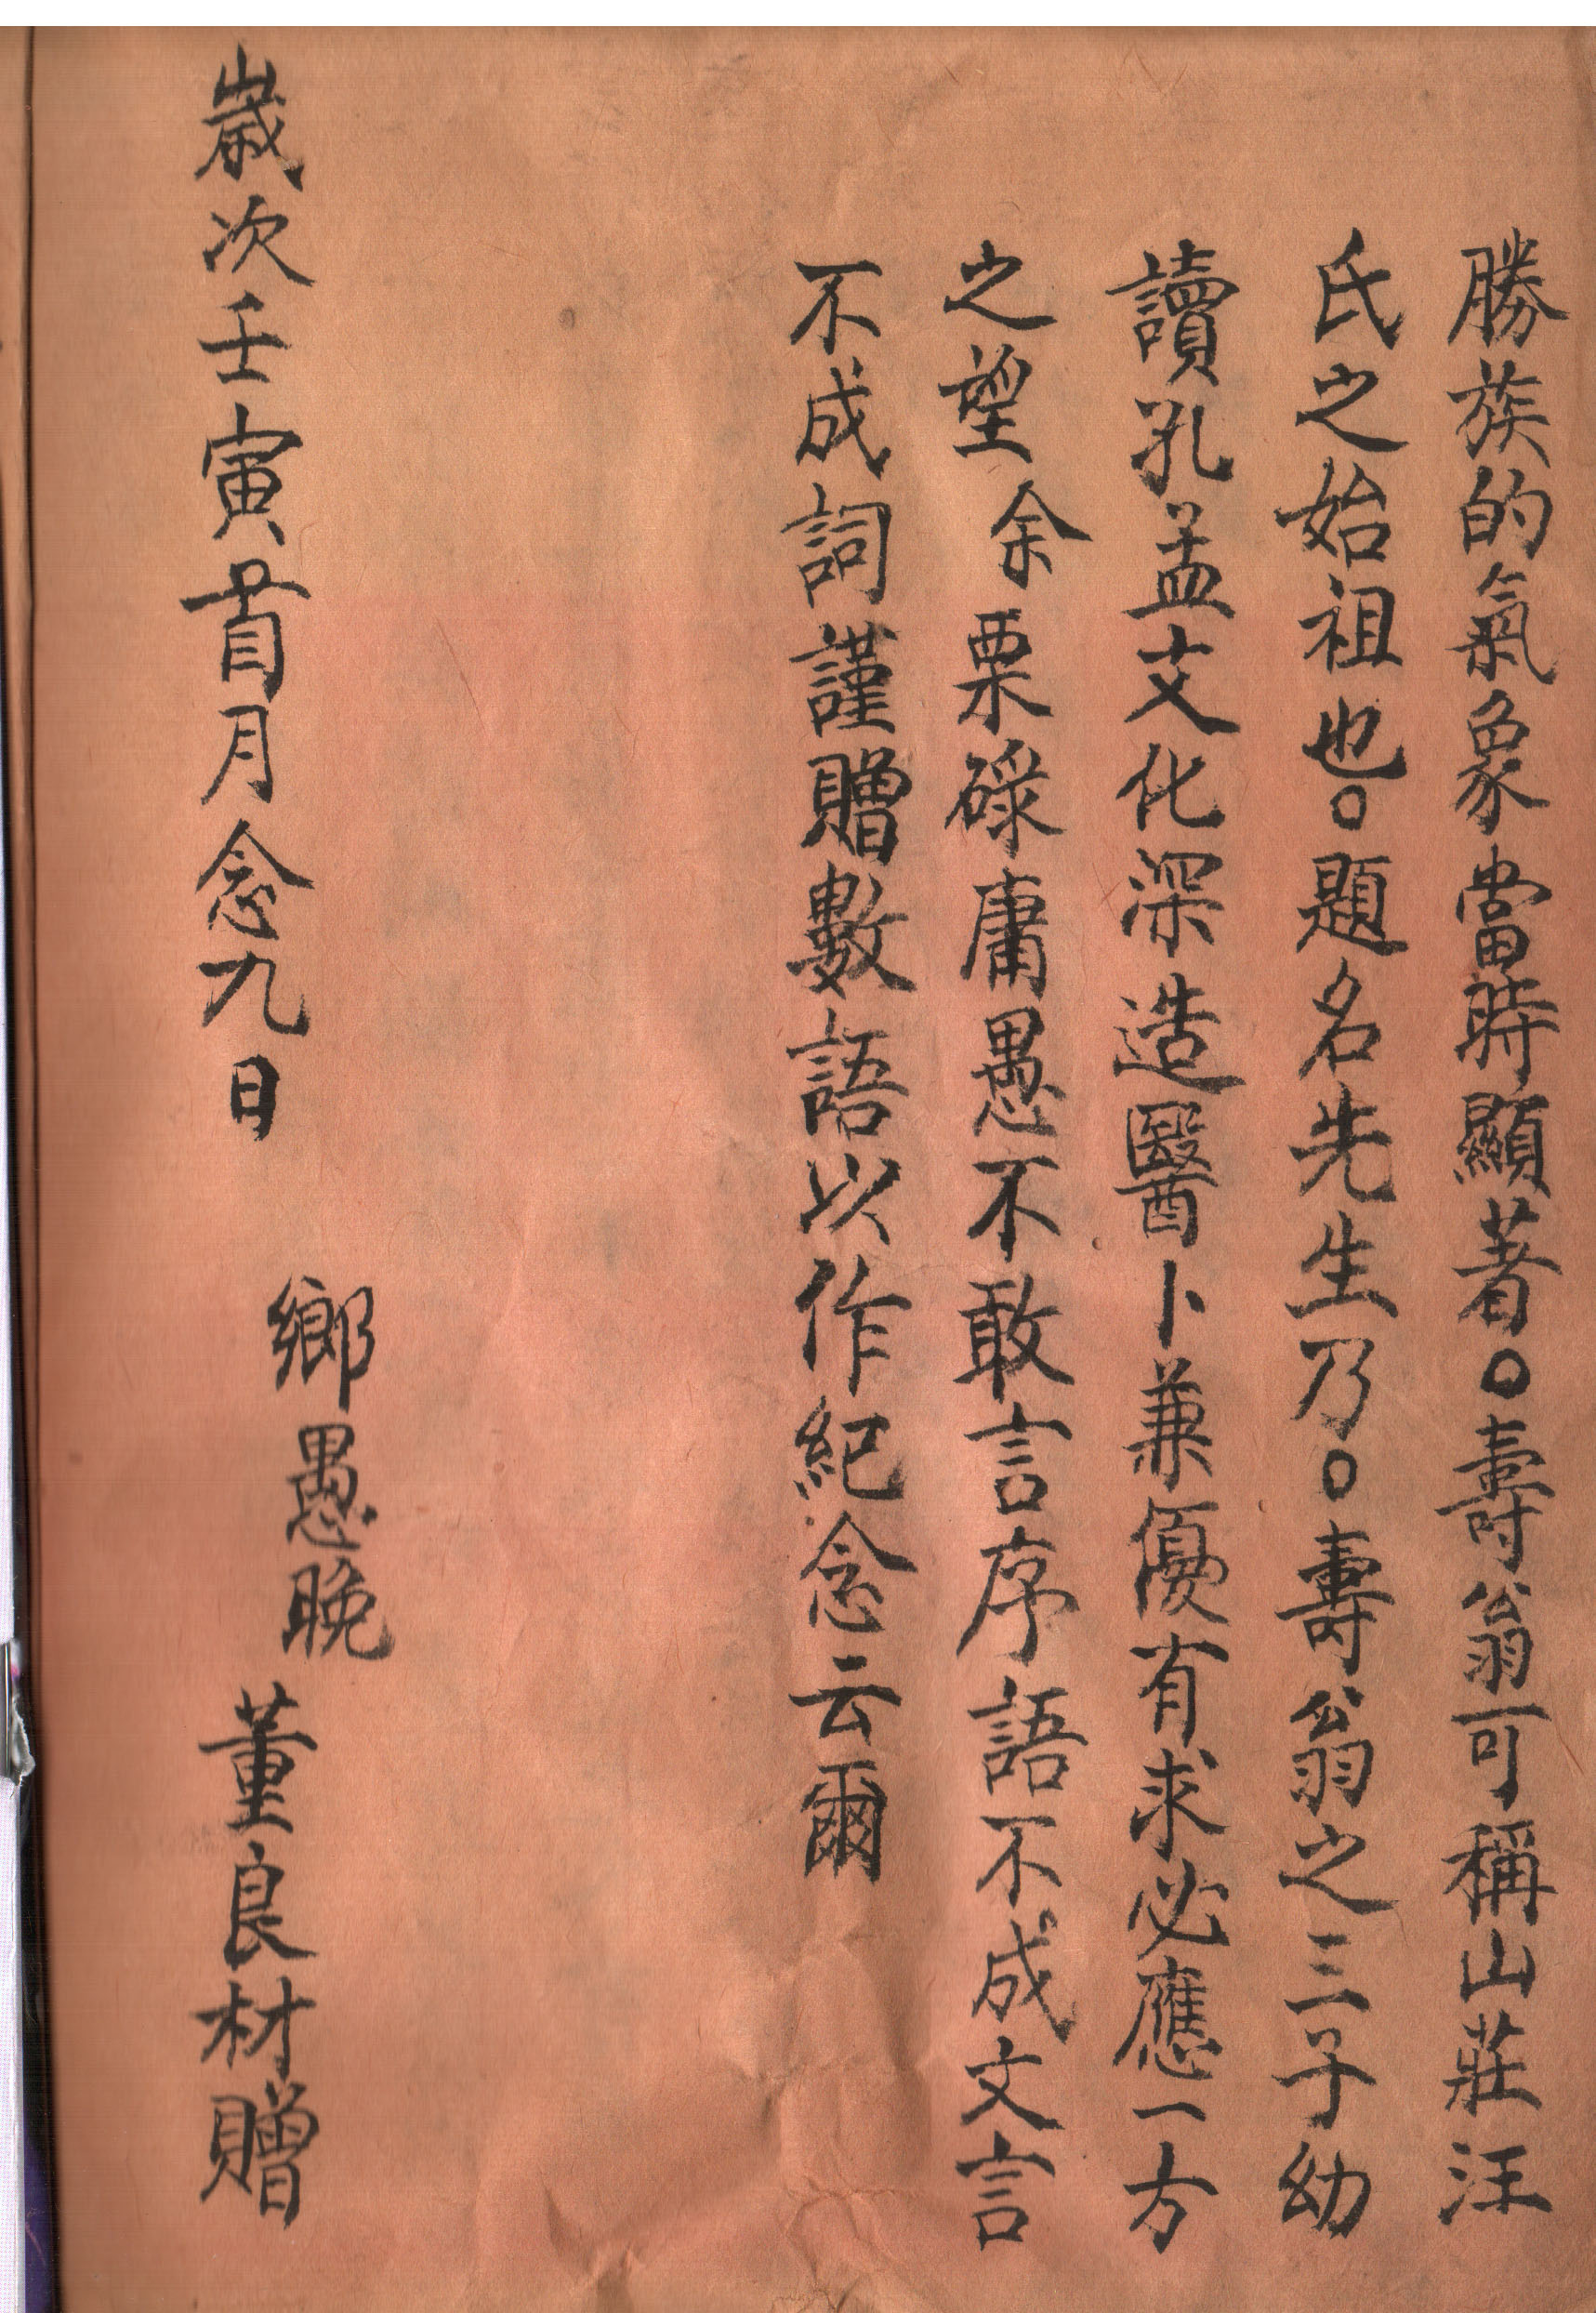 勝族的氣象當時顯著○壽翁可稱山莊汪
氏之始祖也○題名先生乃○壽翁之三子幼
讀孔孟文化深造醫卜兼優有求必應一方
之望余栗碌庸愚不敢言序語不成文言
不成詞謹贈數語以作紀念云爾
歲次壬寅首月念九日
鄉愚晚
董良材贈